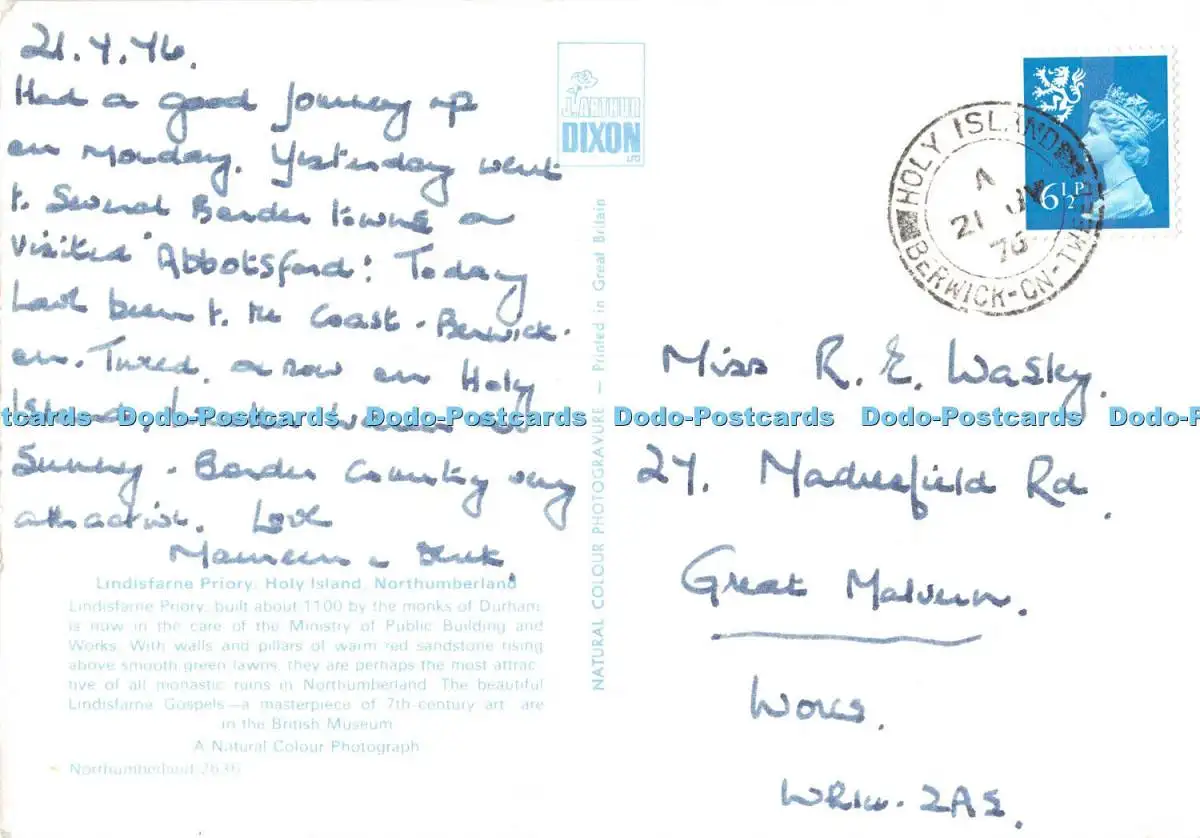 21.7.76.
Had a good journey up
on Monday. Yesterday went
to several Border towns &
visited "Abbotsford". Today
have been to the Coast - Berwick-
on-Tweed, & now on Holy
Island,
Sunny - Border Country very
attractive. Love
Maureen & Derek.
Lindisfarne Priory, Holy Island, Northumberland
Lindisfarne Priory, built about 1100 by the monks of Durham,
is now in the care of the Ministry of Public Building and
Works. With walls and pillars of warm red sandstone rising
above smooth green lawns, they are perhaps the most attrac-
tive of all monastic ruins in Northumberland. The beautiful
Lindisfarne Gospels—a masterpiece of 7th-century art, are
in the British Museum
A Natural Colour Photograph
Northumberland 2636
J. ARTHUR
DIXON
LTD
NATURAL COLOUR PHOTOGRAVURE — Printed in Great Britain
HOLY ISLAND
A
21 JY
76
BERWICK-ON-TWEED
6½P
Miss R. E. Wasky.
27. Madresfield Rd.
Great Malvern.
Worcs.
WR14. 2AS.
Dodo-Postcards Dodo-Postcards Dodo-Postcards Dodo-Postcards